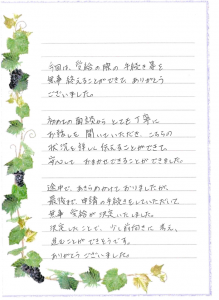 今回は、受給の際の手続き等を
無事終えることができて、ありがとう
ございました。
初めての面談から とても丁寧に
お話しを聞いていただき、こちらの
状況も詳しく伝えることができて、
安心して おまかせできることができました。
途中で、あきらめかけておりましたが、
最後まで、申請の手続きをしていただいて
無事 受給が決定いたしました。
決定したことで、少し前向きに 考え、
進むことが できそうです。
ありがとうございました。